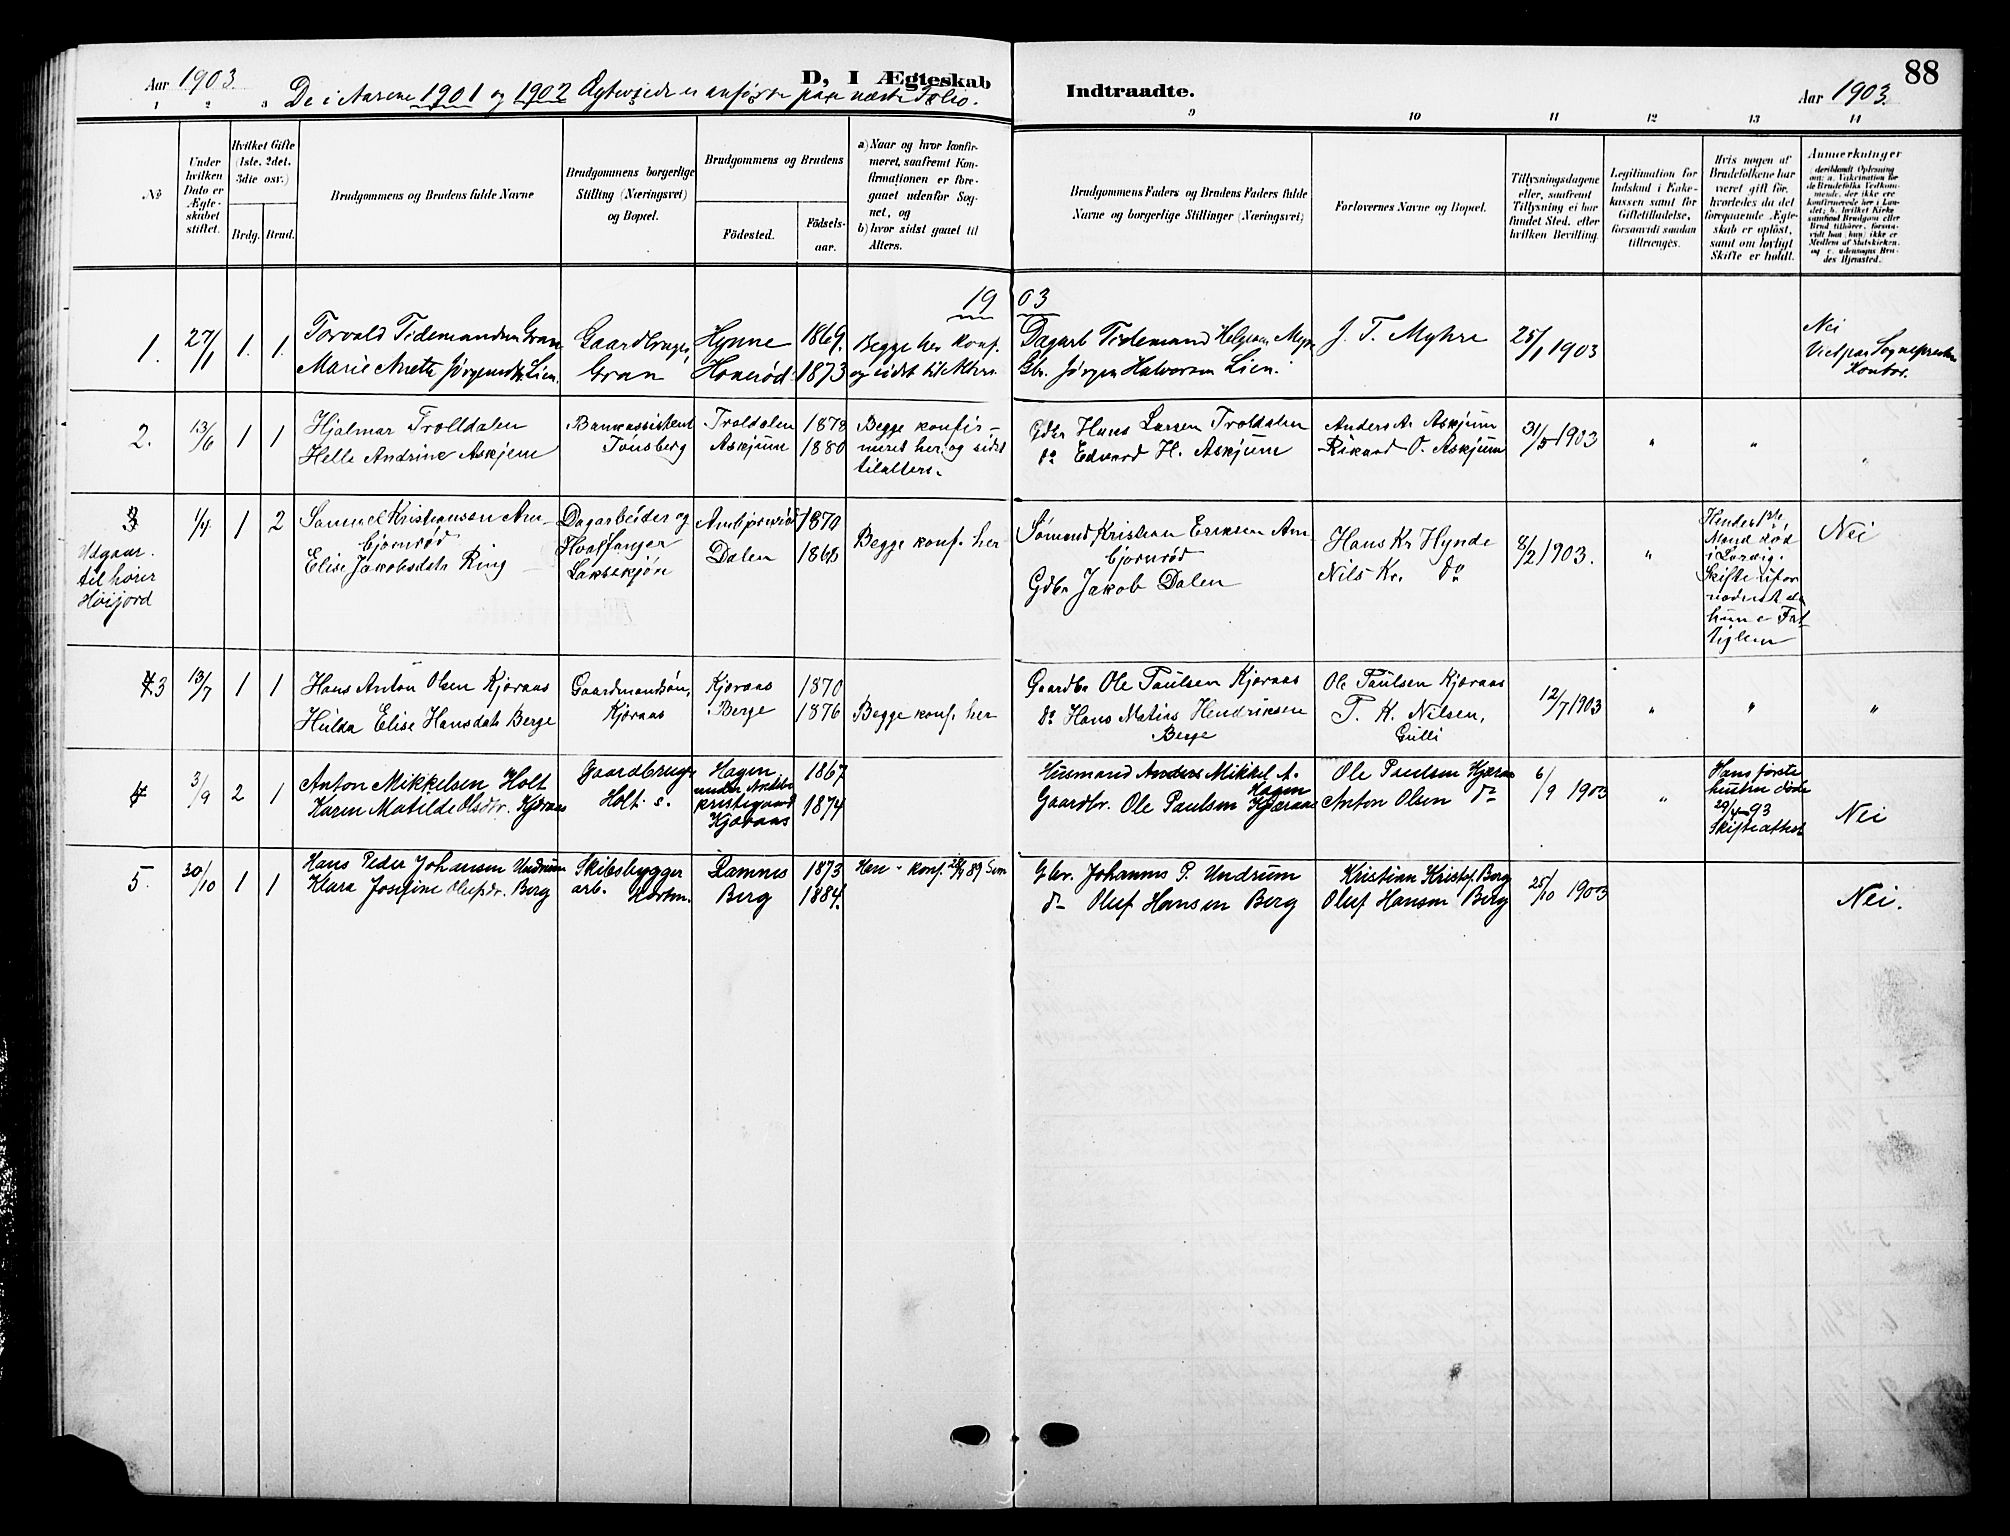 Aar 1903.
D, I Ægteskab
Indtraadte.
Aar 1903.
88
De i Aarene 1901 og 1902 Ægteviede er anførte paa næste Folio.
1 2 3
9 10 11 12 13 14
No
Under hvilken Dato er Ægteskabet stiftet.
Hvilket Gifte (1ste, 2det, 3die osv.)
Brdg. Brud.
Brudgommens og Brudens fulde Navne
Brudgommens borgerlige Stilling (Næringsvei) og Bopæl.
Brudgommens og Brudens
Födested.
Födselsaar.
a) Naar og hvor konfirmeret, saafremt Konfirmationen er foregaaet udenfor Sognet, og
b) hvor sidst gaaet til Alters.
Brudgommens Faders og Brudens Faders fulde Navne og borgerlige Stillinger (Næringsvei)
Forlovernes Navne og Bopæl.
Tillysningsdagene eller, saafremt Tillysning ei har fundet Sted, efter hvilken Bevilling.
Legitimation for Indskud i Enkekassen samt for Giftetilladelse, forsaavidt saadan tiltrænges.
Hvis nogen af Brudefolkene har været gift før, hvorledes da det foregaaende Ægteskab er oplöst, samt om lovligt Skifte er holdt.
Anmerkninger
(deriblandt Oplysning om: a. Vakcination for de Brudefolks Vedkommende, der ikke ere konfirmerede her i Landet; b. hvilket Kirkesamfund Brudgom eller Brud tilhører, forsaavidt han (hun) ikke er Medlem af Statskirken, og c. udensogns Brudes Hjemsted.
1903
1. 27/1 1. 1. Torvald Tidemandsen Gran Gaardbruger, Hynne 1869. Begge her konf. Dagarb Tidemand Helgesen Myre J. T. Myhre 25/1 1903 Nei
Marie Anette Jørgensdt. Lien. Gran Honerød 1873 og sidst til Alters. Gbr. Jørgen Halvorsen Lien. Viet paa Sognepræstens Kontor.
2. 13/6 1 1 Hjalmar Trolldalen Bankassistent Troldalen 1878 Begge konfir- Gdbr Hans Larsen Troldalen Anders A. Askjum 31/5 1903 " "
Helle Andrine Askjem Tønsberg Askjum 1880 meret her, og sidst do Edvard H. Askjum Rikard O. Askjum
tilalters.
3 1/4 1 2 Samuel Kristiansen Am- Dagarbeider og Ambjørnrød 1870 Begge konf. her Sømand Kristian Eriksen Am Hans Kr Hynde 8/2 1903. " Nei
bjørnrød Hvalfanger bjørnrød
Elise Jakobsdatr Ring Lakseskjøn Dalen 1868 Gdbr Jakob Dalen Nils Kr. do
Udgaar.
til hører
Høijord
Hendes 1ste
Mand død
i Larvig.
Skifte ufor
nødent da
hun e Fat
tiglem
3 13/7 1 1 Hans Anton Olsen Kjøraas Gaardmandsøn, Kjøraas 1870 Gaardbr Ole Paulsen Kjøraas Ole Paulsen Kjøraas 12/7 1903 " " "
Hulda Elise Hansdatr Berge Kjøraas Berge 1876 Begge konf. her do Hans Matias Hendriksen T. K. Nilsen,
Berge Gulli
4 3/9 2 1 Anton Mikkelsen Holt Gaardbruger Hagen 1867 Husmand Anders Mikkel A. Ole Paulsen Kjæraas 6/9 1903 "
under
Hagen
Karen Matilde Olsdtr. Kjæraas Holt s. Kjøraas 1874 Gaardbr. Ole Paulsen Kjæraas Anton Olsen do Nei
Hans første
hustru døde
29/4 93
Skifteattest
5. 30/10 1 1 Hans Peder Johansen Undrum Skibsbygger Ramnes 1873 Han - konf. 89 Sem Gbr. Johannes P. Undrum Kristian Kristof. Berg 25/10 1903 Nei.
Klara Josefine Olufsdr. Berg arb. Horten. Berg 1884. do Oluf Hansen Berg Oluf Hansen Berg